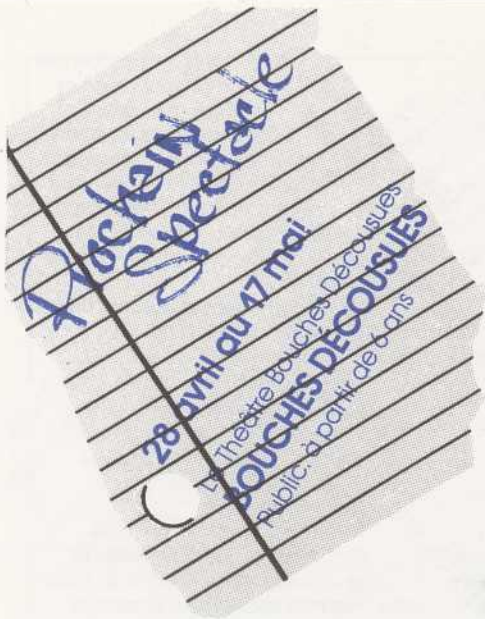 Prochain
Spectacle
28 avril au 17 mai
Le Théâtre Bouches Décousues
BOUCHES DÉCOUSUES
Public: à partir de 6 ans